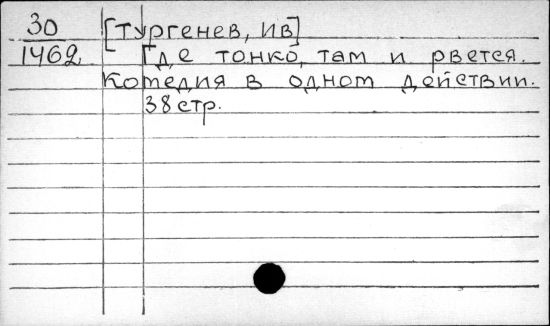 30 [Тургенев, Ив]
1462 Где тонко, там и рвется.
Комедия в одном действии.
38 стр.